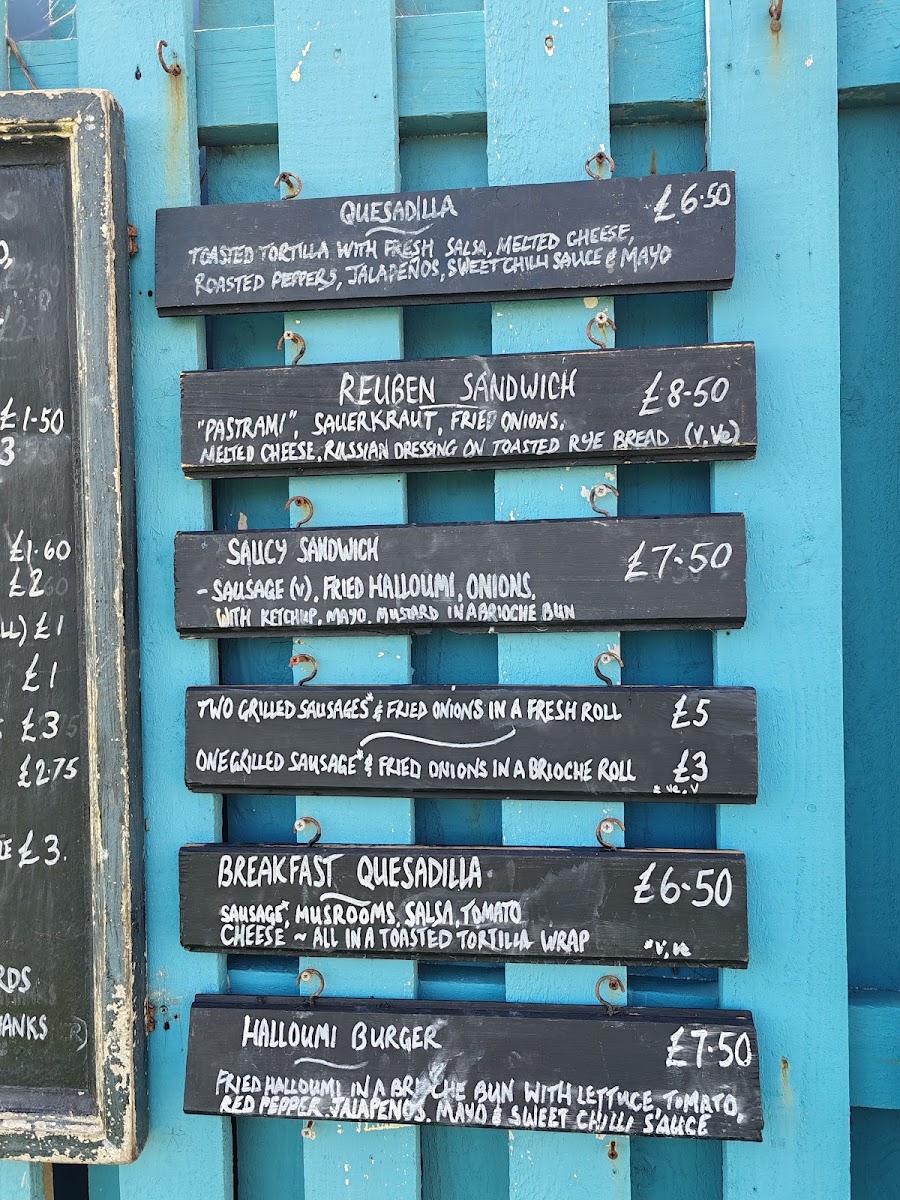 £1·50
3
£1·60
£2
LL) £1
£1
£3
£2.75
£3.
RDS
HANKS
QUESADILLA £6·50
TOASTED TORTILLA WITH FRESH SALSA, MELTED CHEESE,
ROASTED PEPPERS, JALAPEÑOS, SWEET CHILLI SAUCE & MAYO
REUBEN SANDWICH £8·50
"PASTRAMI", SAUERKRAUT, FRIED ONIONS,
MELTED CHEESE, RUSSIAN DRESSING ON TOASTED RYE BREAD (V, Ve)
SAUCY SANDWICH £7·50
- SAUSAGE (V), FRIED HALLOUMI, ONIONS,
WITH KETCHUP, MAYO, MUSTARD IN A BRIOCHE BUN
TWO GRILLED SAUSAGES* & FRIED ONIONS IN A FRESH ROLL £5
ONE GRILLED SAUSAGE* & FRIED ONIONS IN A BRIOCHE ROLL £3
* ve, v
BREAKFAST QUESADILLA £6·50
SAUSAGE*, MUSROOMS, SALSA, TOMATO
CHEESE ~ ALL IN A TOASTED TORTILLA WRAP *V, Ve
HALLOUMI BURGER £7·50
FRIED HALLOUMI IN A BRIOCHE BUN WITH LETTUCE, TOMATO,
RED PEPPER, JALAPEÑOS, MAYO & SWEET CHILLI SAUCE